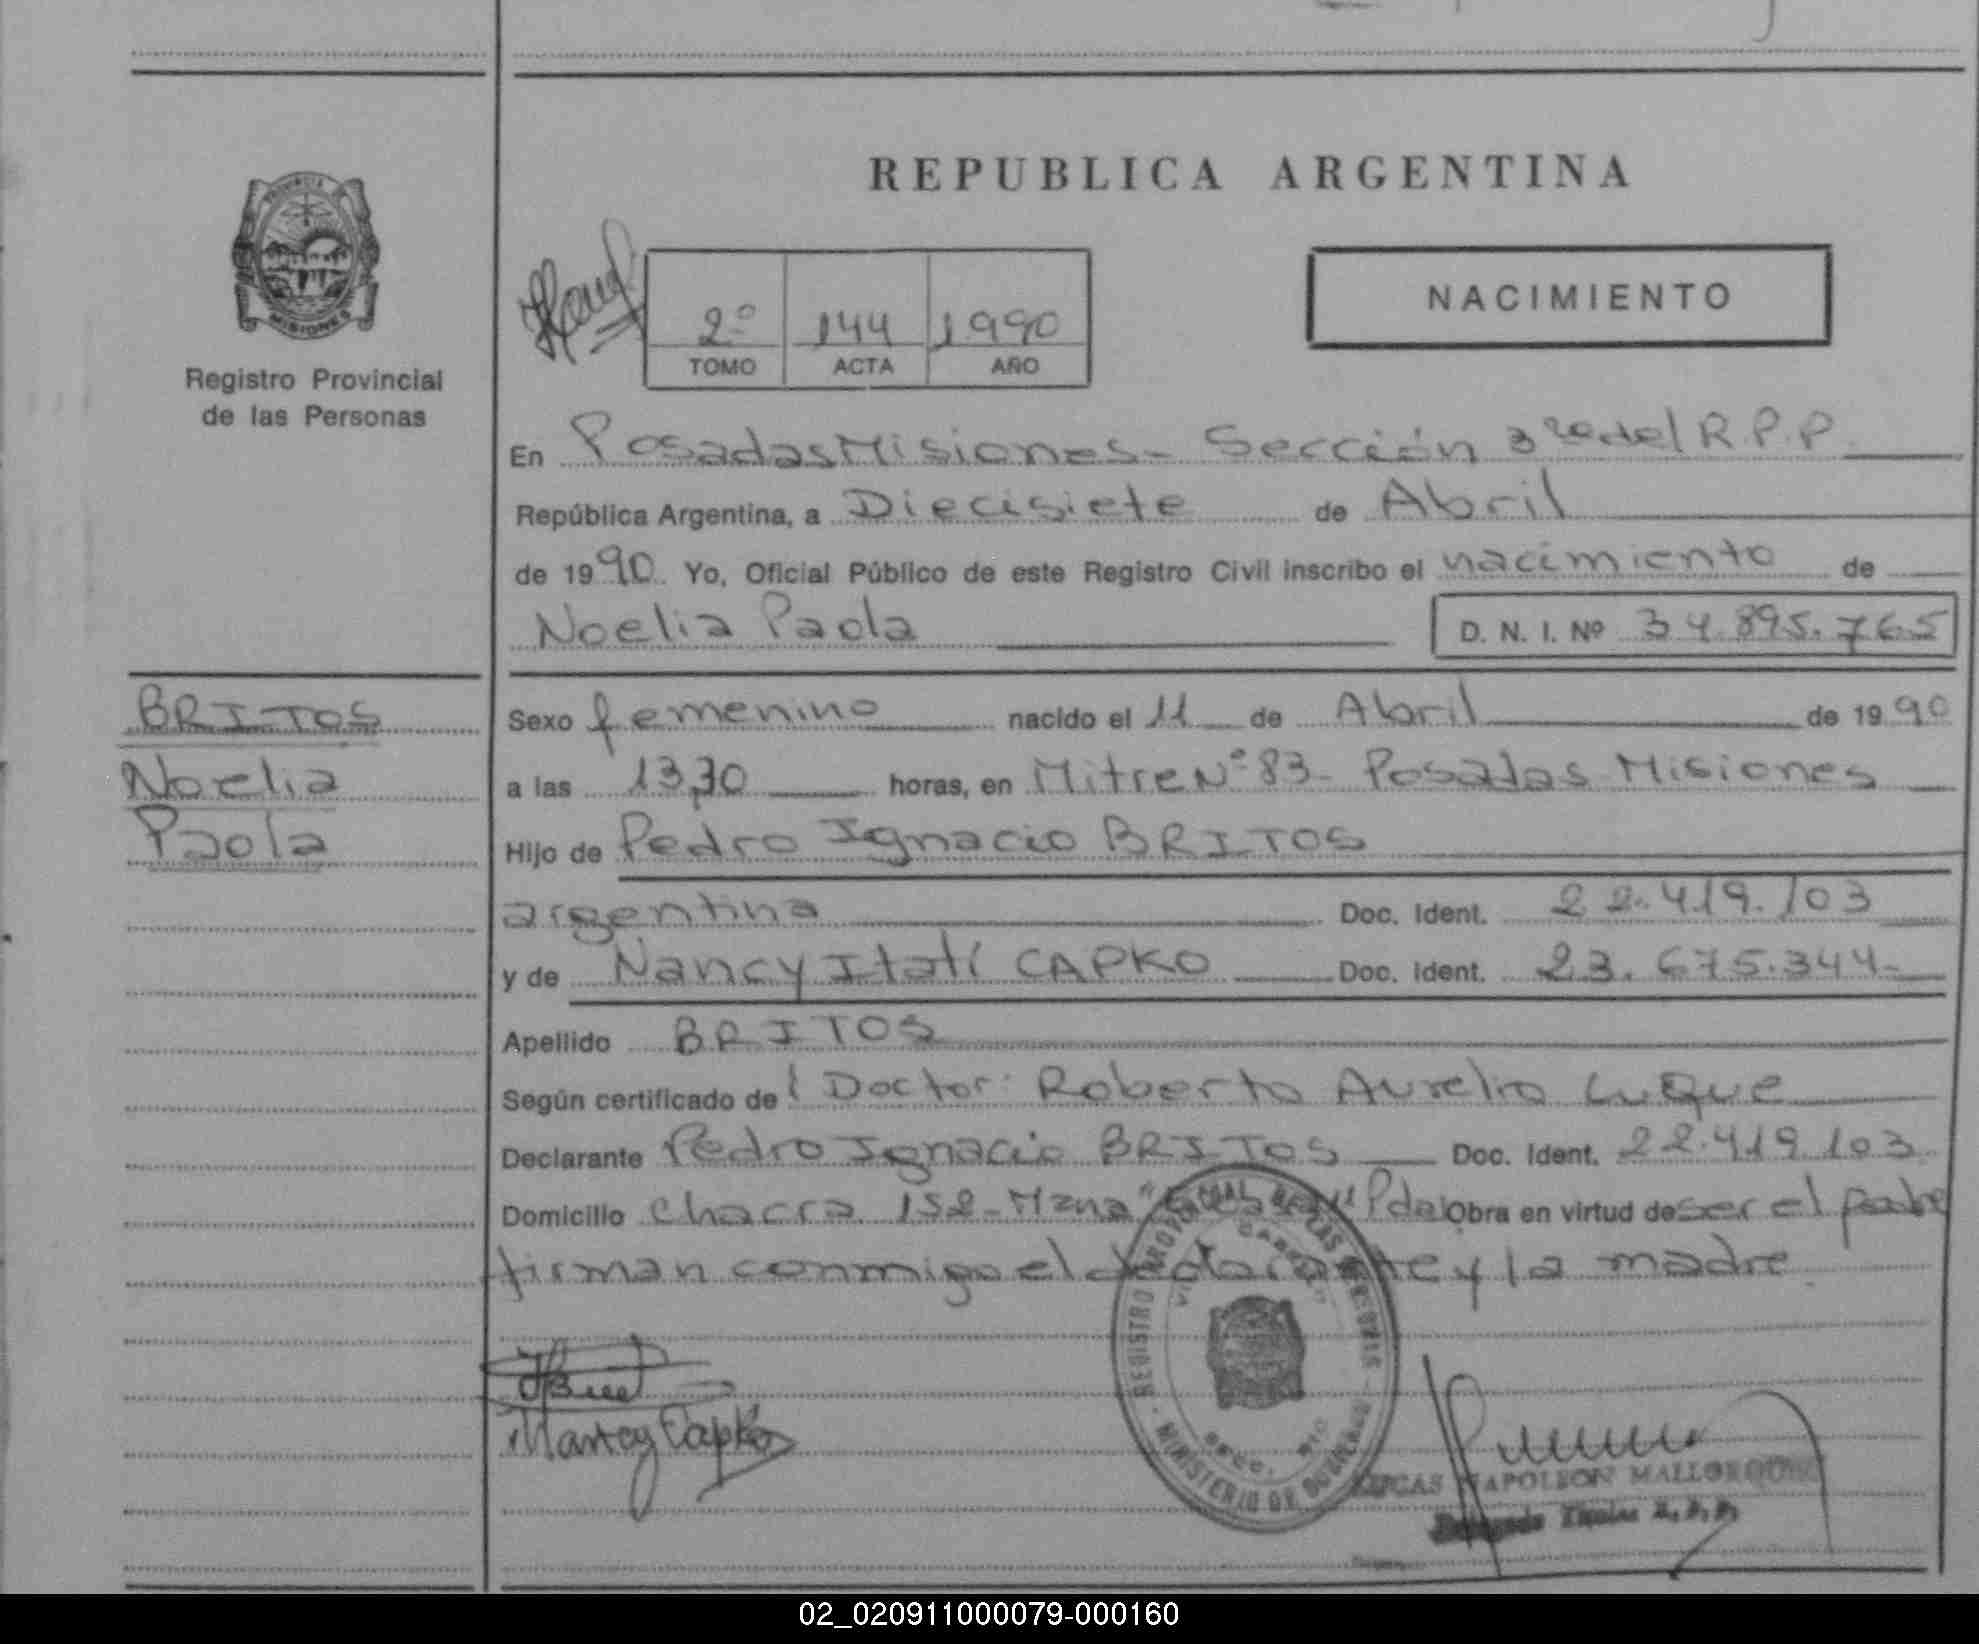 REPUBLICA ARGENTINA
PROVINCIA
MISIONES
Registro Provincial
de las Personas
2º 144 1990
TOMO ACTA AÑO
NACIMIENTO
En Posadas Misiones- Sección 3ra del R.P.P
República Argentina, a Diecisiete de Abril
de 1990 Yo, Oficial Público de este Registro Civil inscribo el nacimiento de
Noelia Paola D. N. I. Nº 34.895.765
BRITOS
Noelia
Paola
Sexo femenino nacido el 11 de Abril de 1990
a las 13,30 horas, en Mitre Nº 83- Posadas Misiones
Hijo de Pedro Ignacio BRITOS
argentina Doc. Ident. 22.419.103
y de Nancy Itatí CAPKO Doc. Ident. 23.675.344-
Apellido BRITOS
Según certificado de Doctor: Roberto Aurelio Luque
Declarante Pedro Ignacio BRITOS Doc. Ident. 22.419.103
Domicilio Chacra 152-Mzna Pdas Obra en virtud de ser el padre
firman conmigo el declarante y la madre
Nancy Capko
REGISTRO PROVINCIAL DE LAS PERSONAS
MINISTERIO DE GOBIERNO
LUCAS NAPOLEON MALLORQUIN
Delegado Titular R.P.P.
02_020911000079-000160